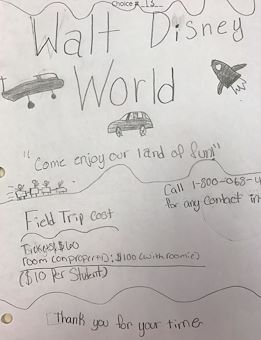 Choice # 13
Walt Disney
World
"Come enjoy our land of fun!"
Call 1-800-068-4
for any contact in
Field Trip Cost
Tickets: $60
room (on property): $100 (with roomie)
($10 Per Student)
Thank you for your time